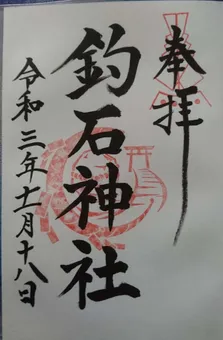 奉拝
釣石神社
令和三年十一月十八日